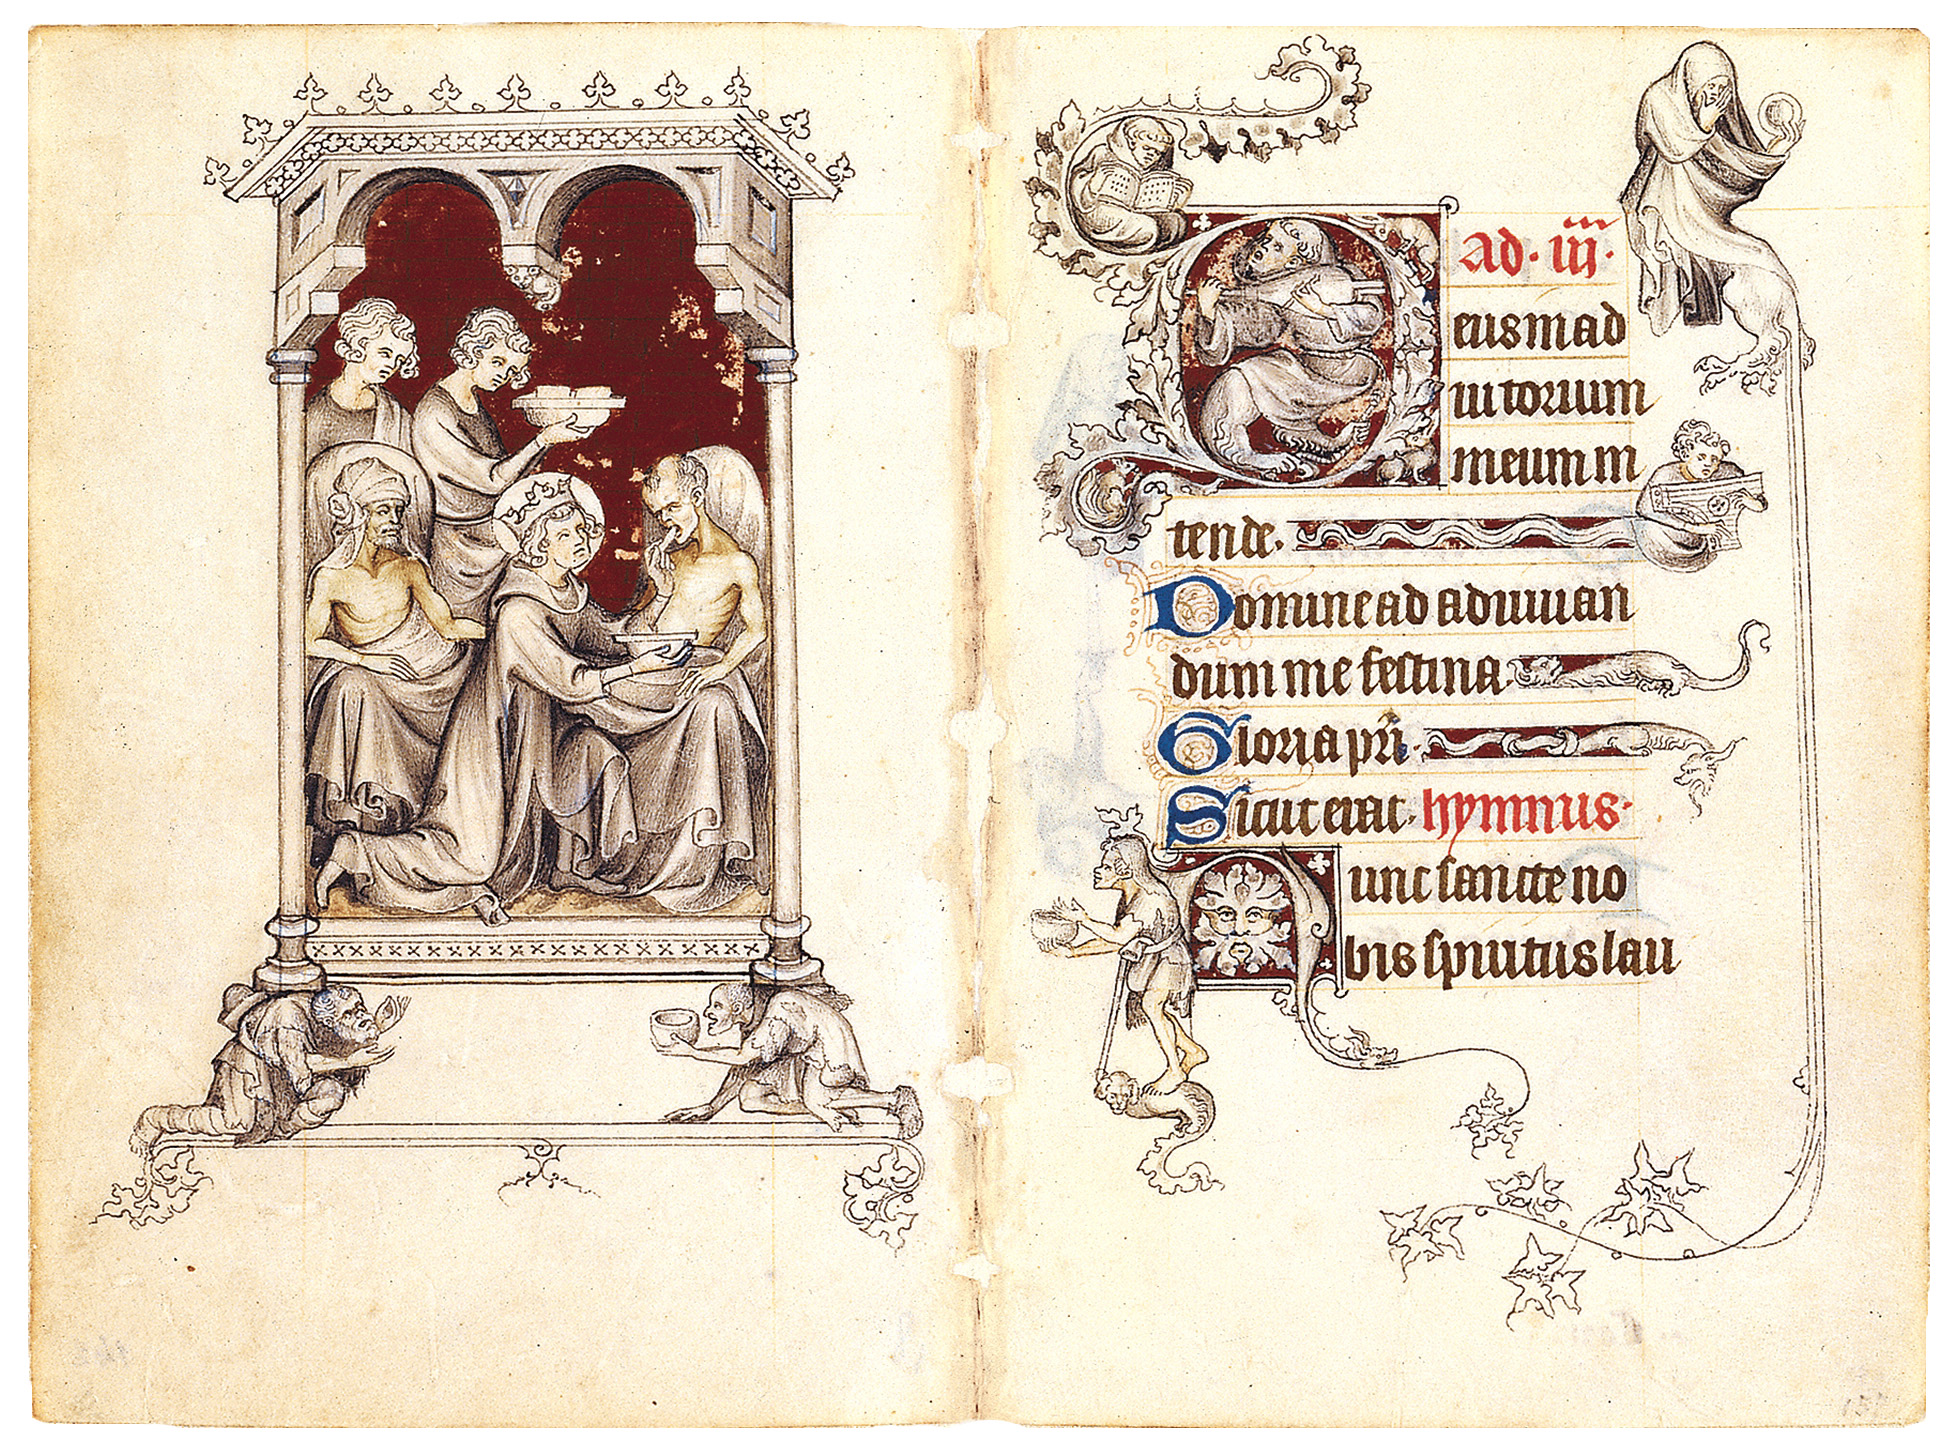 ad · iii ·
Deus in ad
iutorium
meum in
tende.
Domine ad adiuuan
dum me festina.
Gloria pri.
Sicut erat. hymnus.
Nunc sancte no
bis spiritus lau